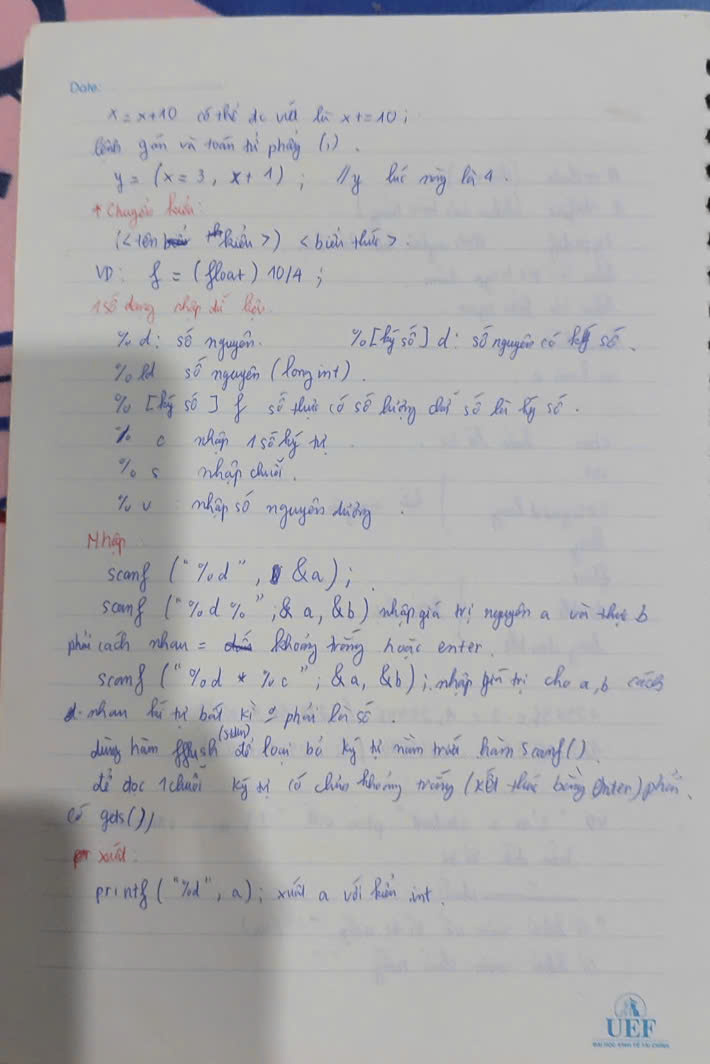 Date:
x = x+10 có thể dc viết là x+=10;
lệnh gán và toán tử phẩy (,).
y = (x = 3, x + 1); //y lúc này là 4.
* Chuyển kiểu:
(<tên kiểu>) <biểu thức>.
VD: f = (float) 10/4;
1 số dạng nhập dữ liệu.
%d: số nguyên. %[ký số] d: số nguyên có ký số.
%ld số nguyên (long int).
%[ký số] f số thực có số lượng chữ số là ký số.
% c nhập 1 số ký tự.
% s nhập chuỗi.
% u nhập số nguyên dương.
Nhập
scanf ("%d", &a);
scanf ("%d %", & a, &b) nhập giá trị nguyên a và thực b
phải cách nhau = khoảng trống hoặc enter.
scanf ("%d * %c"; &a, &b); nhập giá trị cho a, b cách
nhau kí tự bất kì phải là số
dùng hàm fflush (stdin) để loại bỏ ký tự nằm trước hàm scanf().
để đọc 1 chuỗi ký tự có chứa khoảng trắng (kết thúc bằng Enter) phải
có gets();
xuất:
printf ("%d", a); xuất a với kiểu int.
UEF
ĐẠI HỌC KINH TẾ TÀI CHÍNH